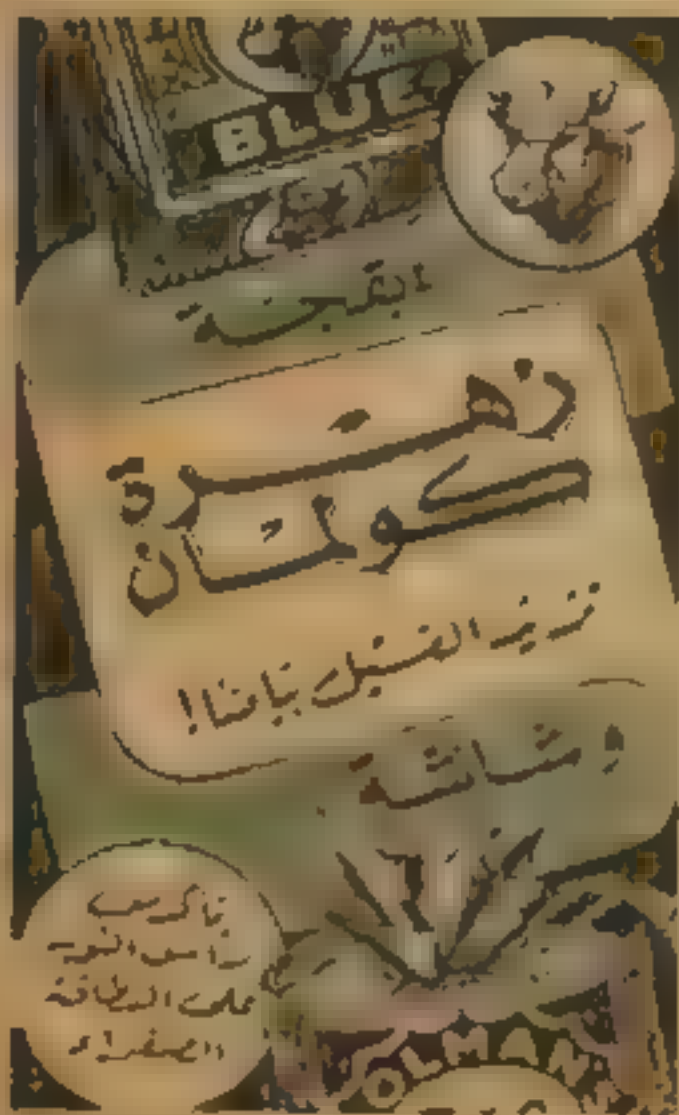 BLUE
زهرة
كولمان
تزيد الغسيل بياضا!
وشاشة
تأكد من
رأس الثور
على البطاقة
الصفراء
OLMAN